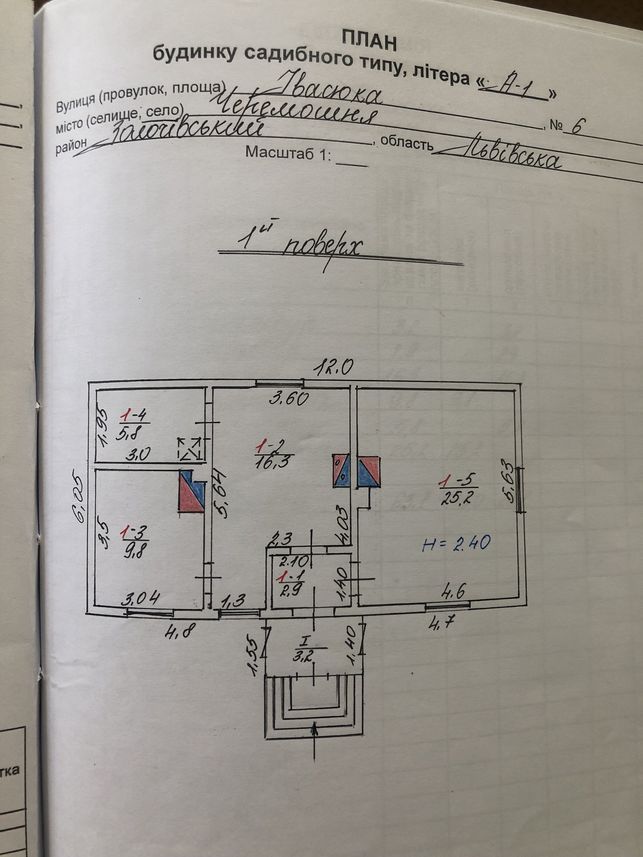 ПЛАН
будинку садибного типу, літера « А-1 »
Вулиця (провулок, площа) Івасюка
місто (селище, село) Черемошня, № 6
район Золочівський, область Львівська
Масштаб 1:
1ий поверх
12.0
3.60
1.95
1-4
5,8
3,0
1-2
16,3
6,05
5,64
1-5
25,2
5,63
3,5
1-3
9,8
4,03
2,3
H = 2.40
2.10
1-1
2,9
1,40
3.04
1,3
4.6
4,8
4.7
1,55
I
3,2
1,40
тка